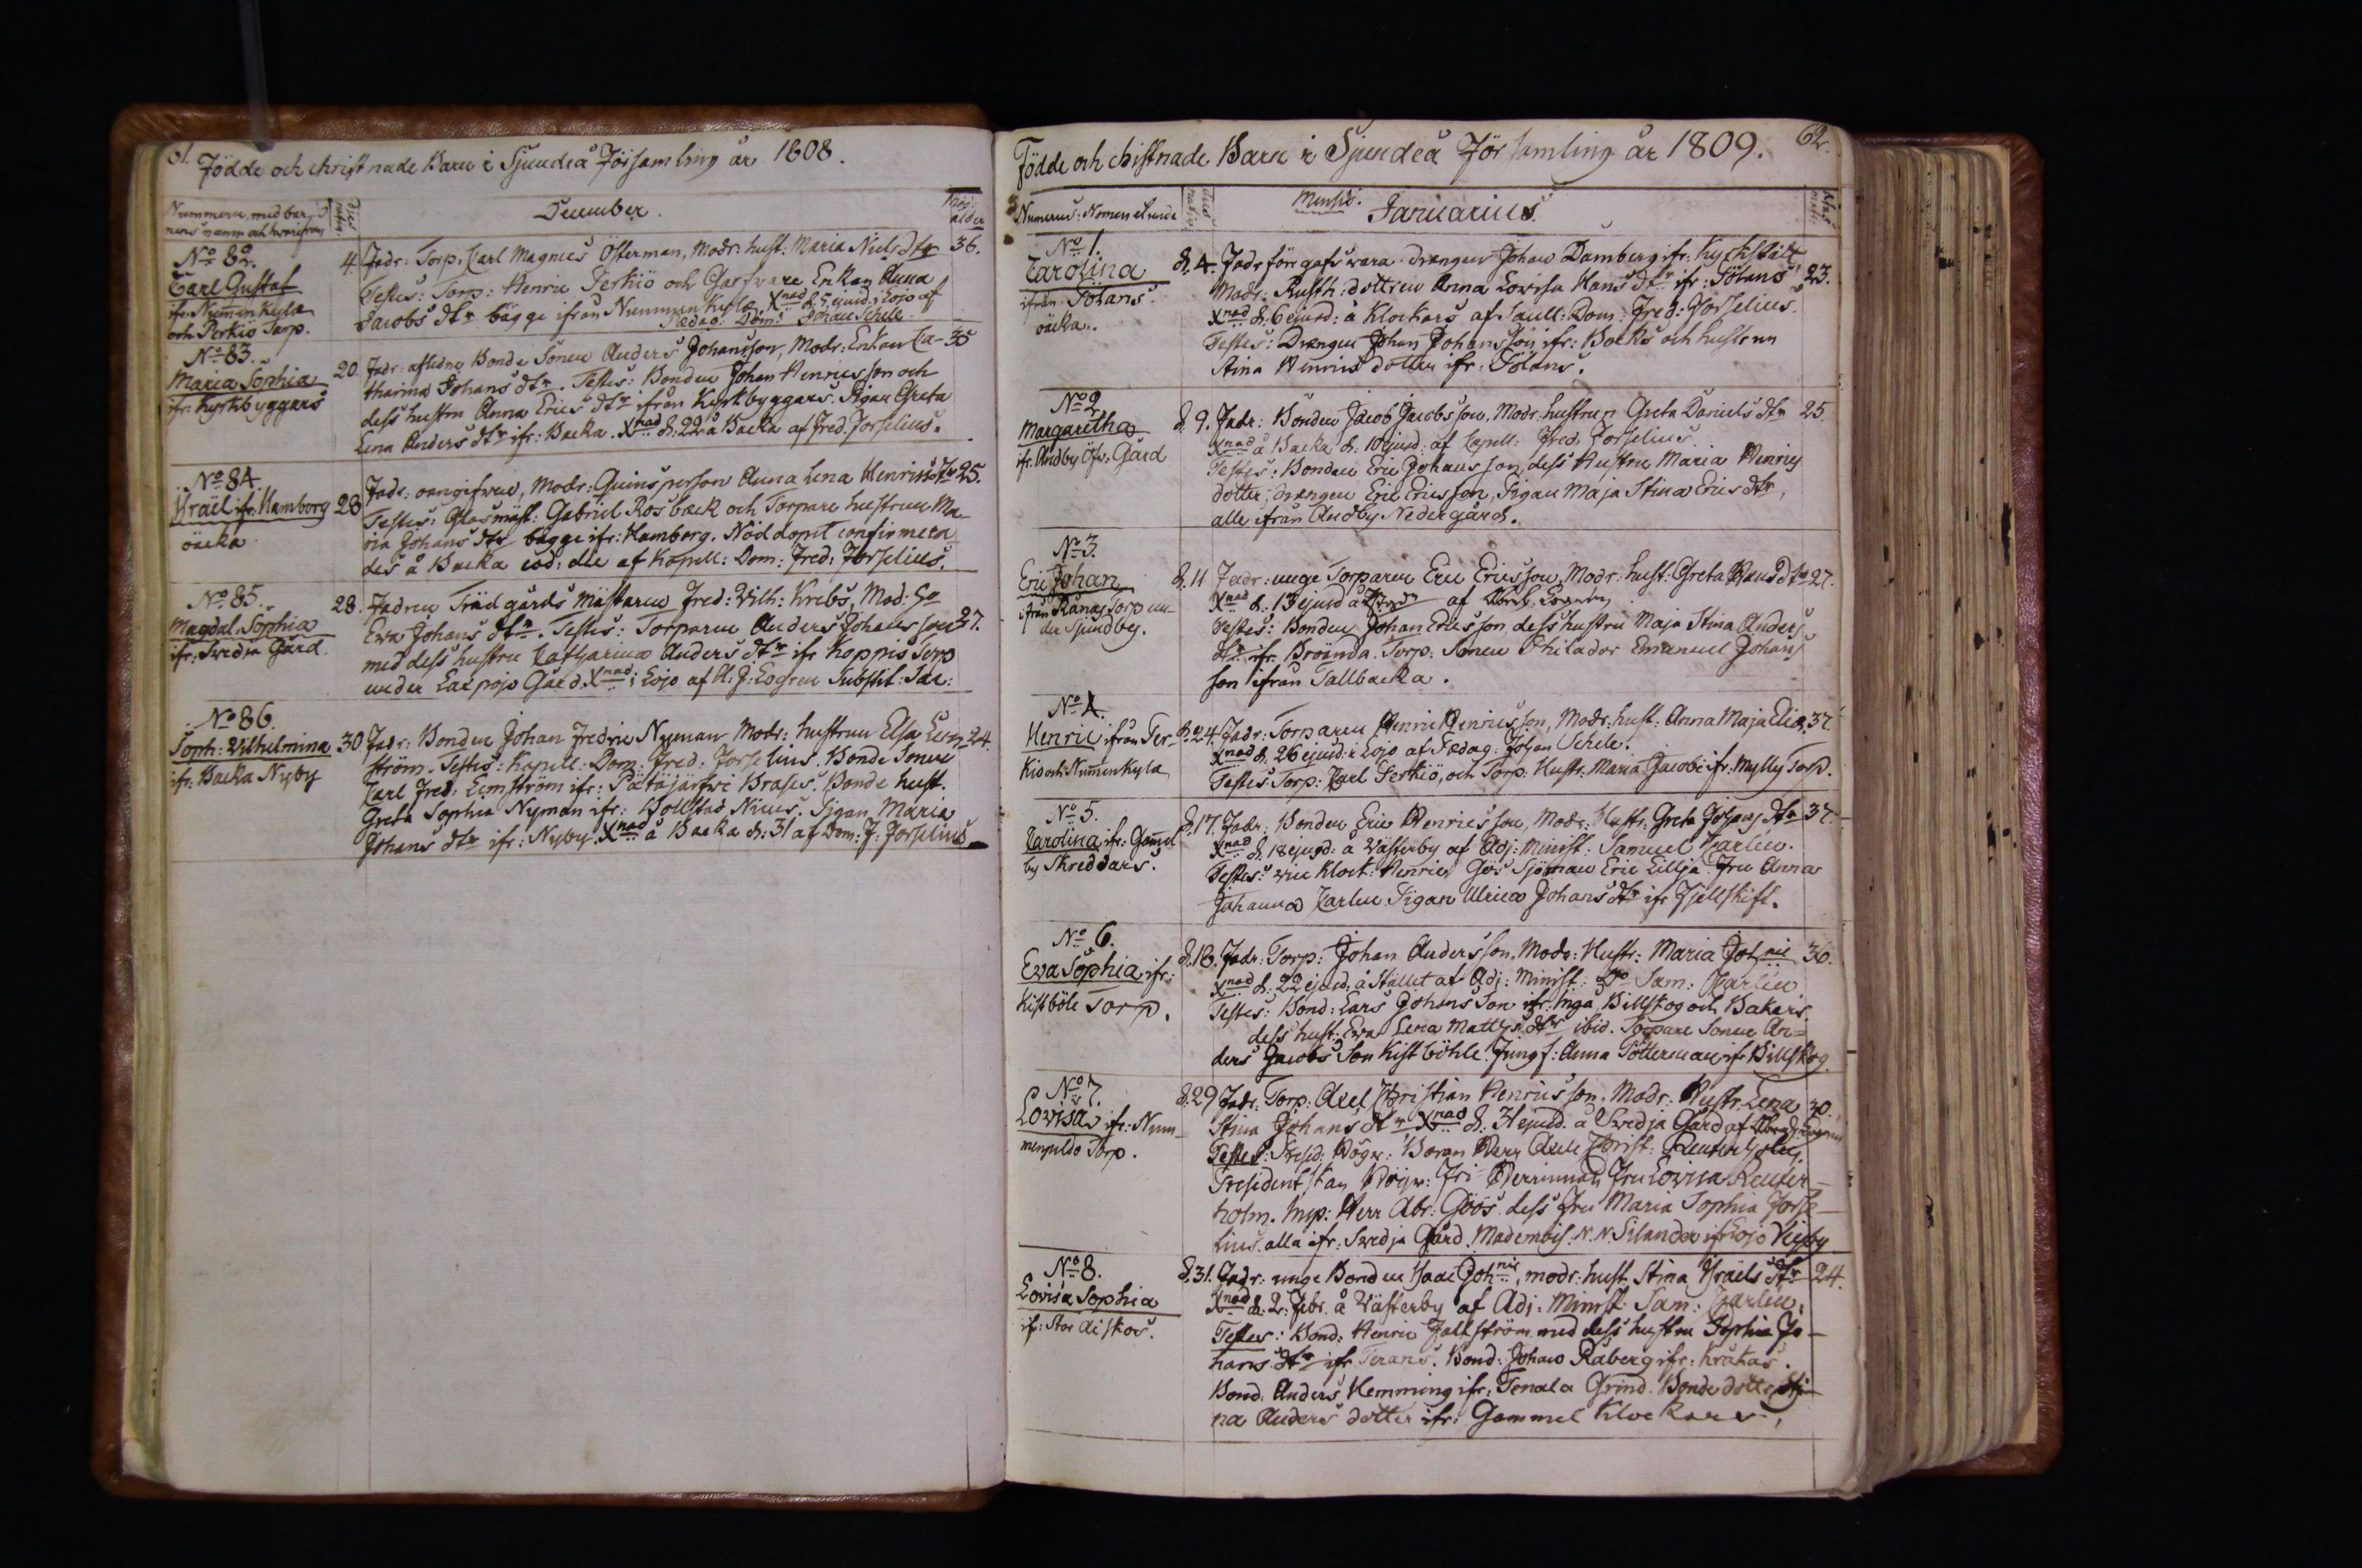 61. Födde och christnade Barn i Sjundeå Församling år 1808.
Nummern, med bar-
nens namn och hwarifrån
December.
Mod: ålder
No 82.
Carl Gustaf
ifr: Nummenkylä
och Perkiö Torp.
4. Fadr: Torp: Carl Magnus Österman, Modr: hust: Maria Niels dtr 36.
Testes: Torp: Henric Perkiö och Garfware Enkan Anna
Jacobs dtr bägge ifrån Nummenkylä, Xnad d. 5 ejusd: i Lojo af
Pædag: Dom: Johan Schele.
No 83.
Maria Sophia
ifr: Kyrkbyggars
20. Fadr: afledne Bonde Sonen Anders Johansson, Modr: Enkan Ca- 35
tharina Johans dtr. Testes: Bonden Johan Henricsson och
dess hustru Anna Erics dtr ifrån Kyrkbyggars. Pigan Greta
Lena Anders dtr ifr: Backa. Xnad d: 22 å Backa af Fred. Forselius.
No 84.
Israël ifr: Hamborg
öäckta
28 Fadr: oangifwen, Modr: Quinsperson Anna Lena Henrics dtr 25.
Testes: Glasmäst: Gabriel Rosback och Torpare hustrun Ma-
ria Johans dtr bägge ifr: Hamborg. Nöddopet confirmera
des å Backa eod: die af Kapell: Dom: Fred: Forselius.
No 85.
Magdal. Sophia
ifr: Swedja Gård.
28. Fadren Trädgårds mästaren Fred: Vilh: Krebs, Mod:
Ewa Johans dtr. Testes: Torparen Anders Johansson 37.
med dess hustru Catharina Anders dtr ifr Koppis Torp
under Laxpojo Gård. Xnad i Lojo af A: J: Logren Substit: Sac:
No 86.
Soph: Vilhelmina
ifr: Backa Nyby
30 Fadr: Bonden Johan Fredric Nyman Modr: hustrun Elsa Lem- 24.
ström. Testes: Kapell: Dom: Fred: Forselius. Bonde Sonen
Carl Fred: Lemström ifr: Pätäjärfwi Brases. Bonde hust.
Greta Sophia Nyman ifr: Bollstad Nises. Pigan Maria
Johans dtr ifr: Nyby. Xnad å Backa d: 31 af Dom: F: Forselius
Födde och christnade Barn i Sjundeå Församling år 1809. 62.
Numerus: Nomen et unde
Mensis. Januarius.
No 1.
Carolina
ifrån Fötans
öäckta.
d. 4. Fadr föregafs wara drängen Johan Damberg ifr: Kyrkstält
Modr: Rusth: dottren Anna Lovisa Hans dtr ifr: Fötans 23.
Xnad d: 6 ejusd: å Klockars af Sacell: Dom: Fred: Forselius.
Testes: Drängen Johan Johansson ifr: Bocks och hustrun
Stina Henrics dotter ifr: Fötans.
No 2
Margaretha
ifr. Andby Öfv: Gård
d. 9. Fadr: Bonden Jacob Jacobsson, Modr: hustrun Greta Daniels dtr 25
Xnad å Backa d: 10 ejusd: af Capell: Fred: Forselius.
Testes: Bonden Eric Johansson, dess Hustru Maria Henrics
dotter, drängen Eric Ericsson, Pigan Maja Stina Erics dtr,
alle ifrån Andby Nedergård.
No 3.
Eric Johan
ifrån Rånäs Torp un
der Sjundby.
d. 11 Fadr: unge Torparen Eric Ericsson, Modr: hust: Greta Hans dtr 27.
Xnad d: 13 ejusd å af
Testes: Bonden Johan Ericsson, dess hustru Maja Stina Anders
dtr ifr Brännda. Torp: Sonen Philador Emanuel Johans
son ifrån Tallbacka.
No 4.
Henric ifrån Per-
kiö och Nummenkylä
d. 24. Fadr: Torparen Henric Henricsson, Modr: hust: Anna Maja Elia, 37.
Xnad d. 26 ejusd: i Lojo af Pædag: Johan Schele.
Testes: Torp: Carl Perkiö, och Torp: Hustr: Maria Jacobi ifr: Mylly Torp.
No 5.
Carolina ifr: Gammel
by Skreddars.
d. 17. Fadr: Bonden Eric Henricsson, Modr: Hustr: Greta Johans dtr 37
Xnad d. 18 ejusd: å Wästerby af Adj: Minist: Samuel Carlén.
Testes: vice Klock: Henric Gös Sjöman Eric Lillja Fru Anna
Johanna Carlen Pigan Ulrica Johans dtr ifr Fjellskift.
No 6.
Ewa Sophia ifr:
Kistböle Torp.
d. 18. Fadr: Torp: Johan Andersson, Modr: Hustr: Maria Johnis 30.
Xnad d: 22 ejusd: å Stället af Adj: Minist: Do Sam: Carlén
Testes: Bond: Lars Johans Son ifr: Ingå Billskog och Bakars
dess hust: Ewa Lena Matts dtr ibid. Torpare Sonen An=
ders Jacobs Son Kistböhle. Jungf: Anna Fötterman ifr Billskog.
No 7.
Lovisa ifr: Num-
menpeldo Torp.
d. 29 Fadr: Torp: Axel Christian Henricsson. Modr: Hustr. Lena 30.
Stina Johans dtr Xnad d. 31 ejusd: å Swedja Gård af
Testes: Presid: Högw: Baron Herr Axel Christ: Reuterholm,
Presidentskan Högw: Fri-Herrinnan Fru Lovisa Reuter-
holm. Insp: Herr Abr: Göös dess Fru Maria Sophia Forse-
lius. alla ifr: Swedja Gård. Mademois: N. N. Silander ifr Lojo Nyby
No 8.
Lovisa Sophia
ifr: Stor Aiskos.
d. 31. Fadr: unge Bonden Isaac Johnis, modr: hust Stina Israels dtr 24.
Xnad d: 2. Febr. å Wästerby af Adj: Minist: Sam: Carlén.
Testes: Bond: Henric Fallström med dess hustru Sophia Jo-
hans dtr ifr Terans. Bond: Johan Råberg ifr: Kråkas.
Bond: Anders Hemming ifr: Tenala Grind. Bonde dotter Sti-
na Anders dotter ifr: Gammel Klockars.